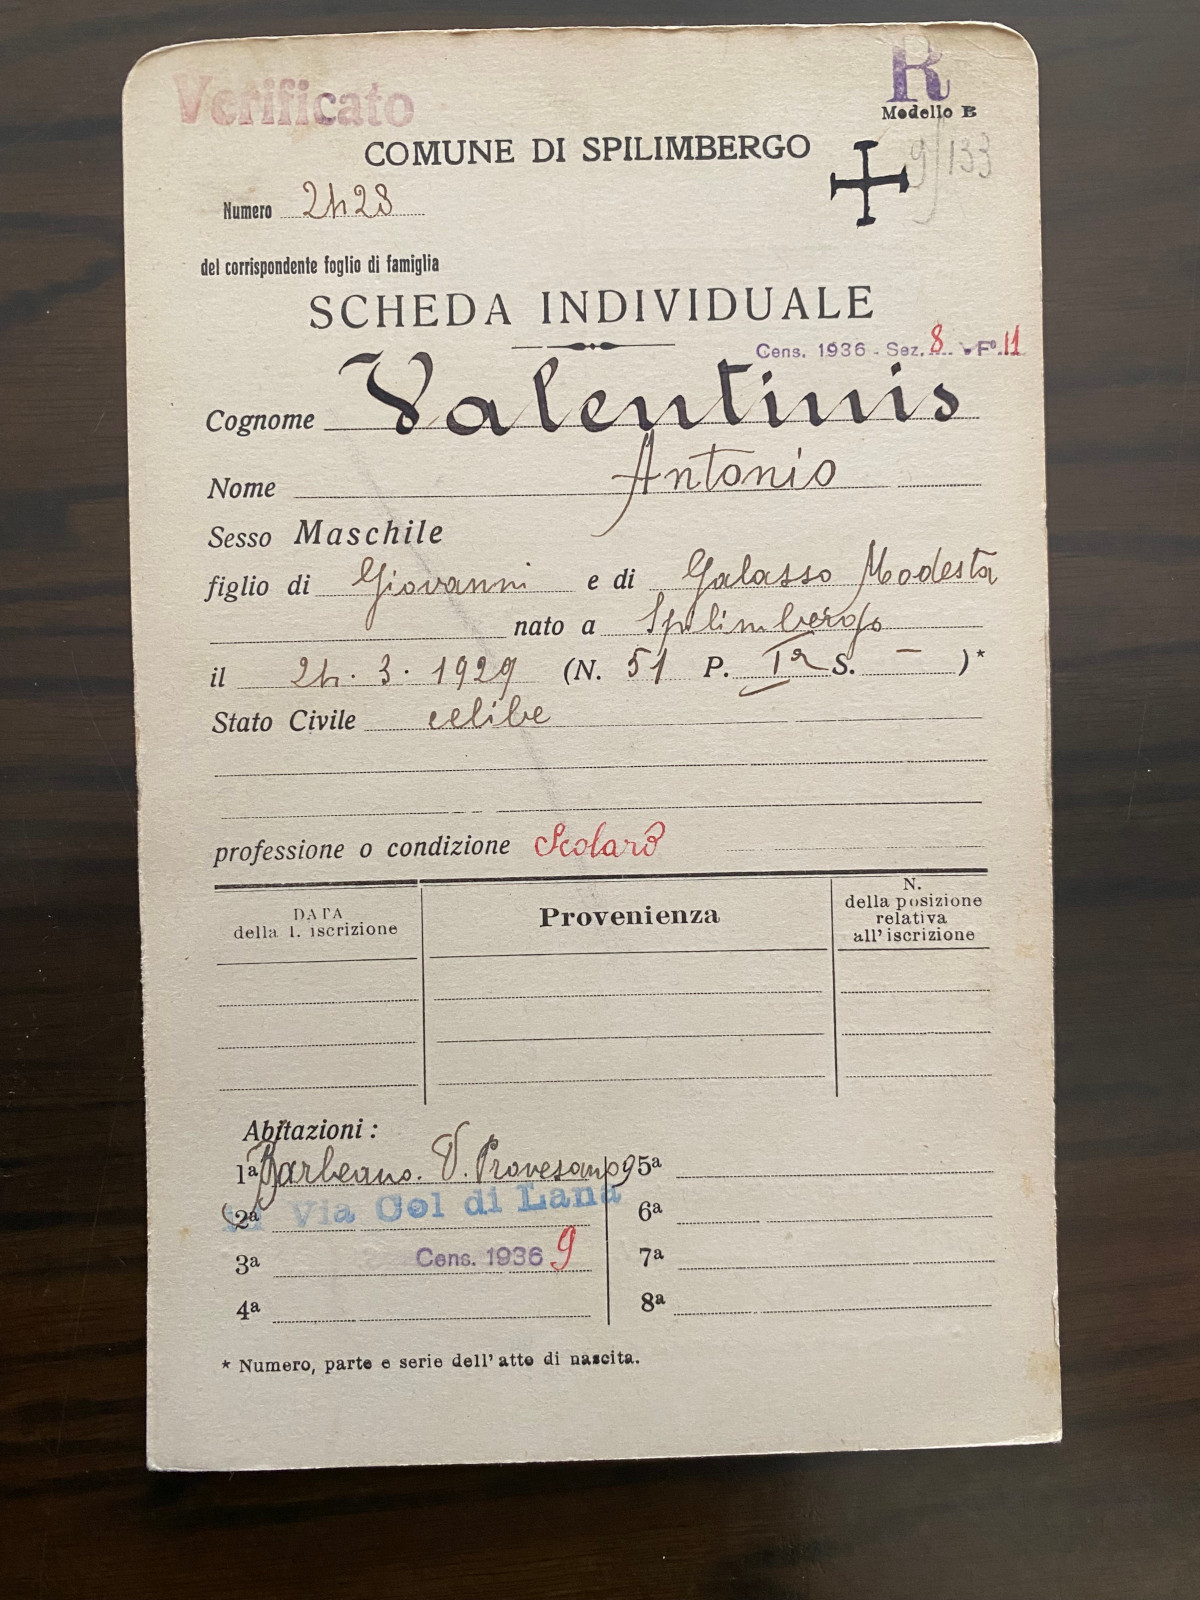 Verificato
R
Modello B
COMUNE DI SPILIMBERGO
9/133
Numero 2428
del corrispondente foglio di famiglia
SCHEDA INDIVIDUALE
Cens. 1936 - Sez. 8 F°. 11
Cognome Valentinis
Nome Antonio
Sesso Maschile
figlio di Giovanni e di Galasso Modesta
nato a Spilimbergo
il 24. 3. 1929 (N. 51 P. Iª S. – )*
Stato Civile celibe
professione o condizione Scolaro
DATA
della 1. iscrizione
Provenienza
N.
della posizione
relativa
all'iscrizione
Abitazioni :
1ª Barbeano. V. Provesano 9
2ª Via Col di Lana
3ª Cens. 1936 9
4ª
5ª
6ª
7ª
8ª
* Numero, parte e serie dell'atto di nascita.